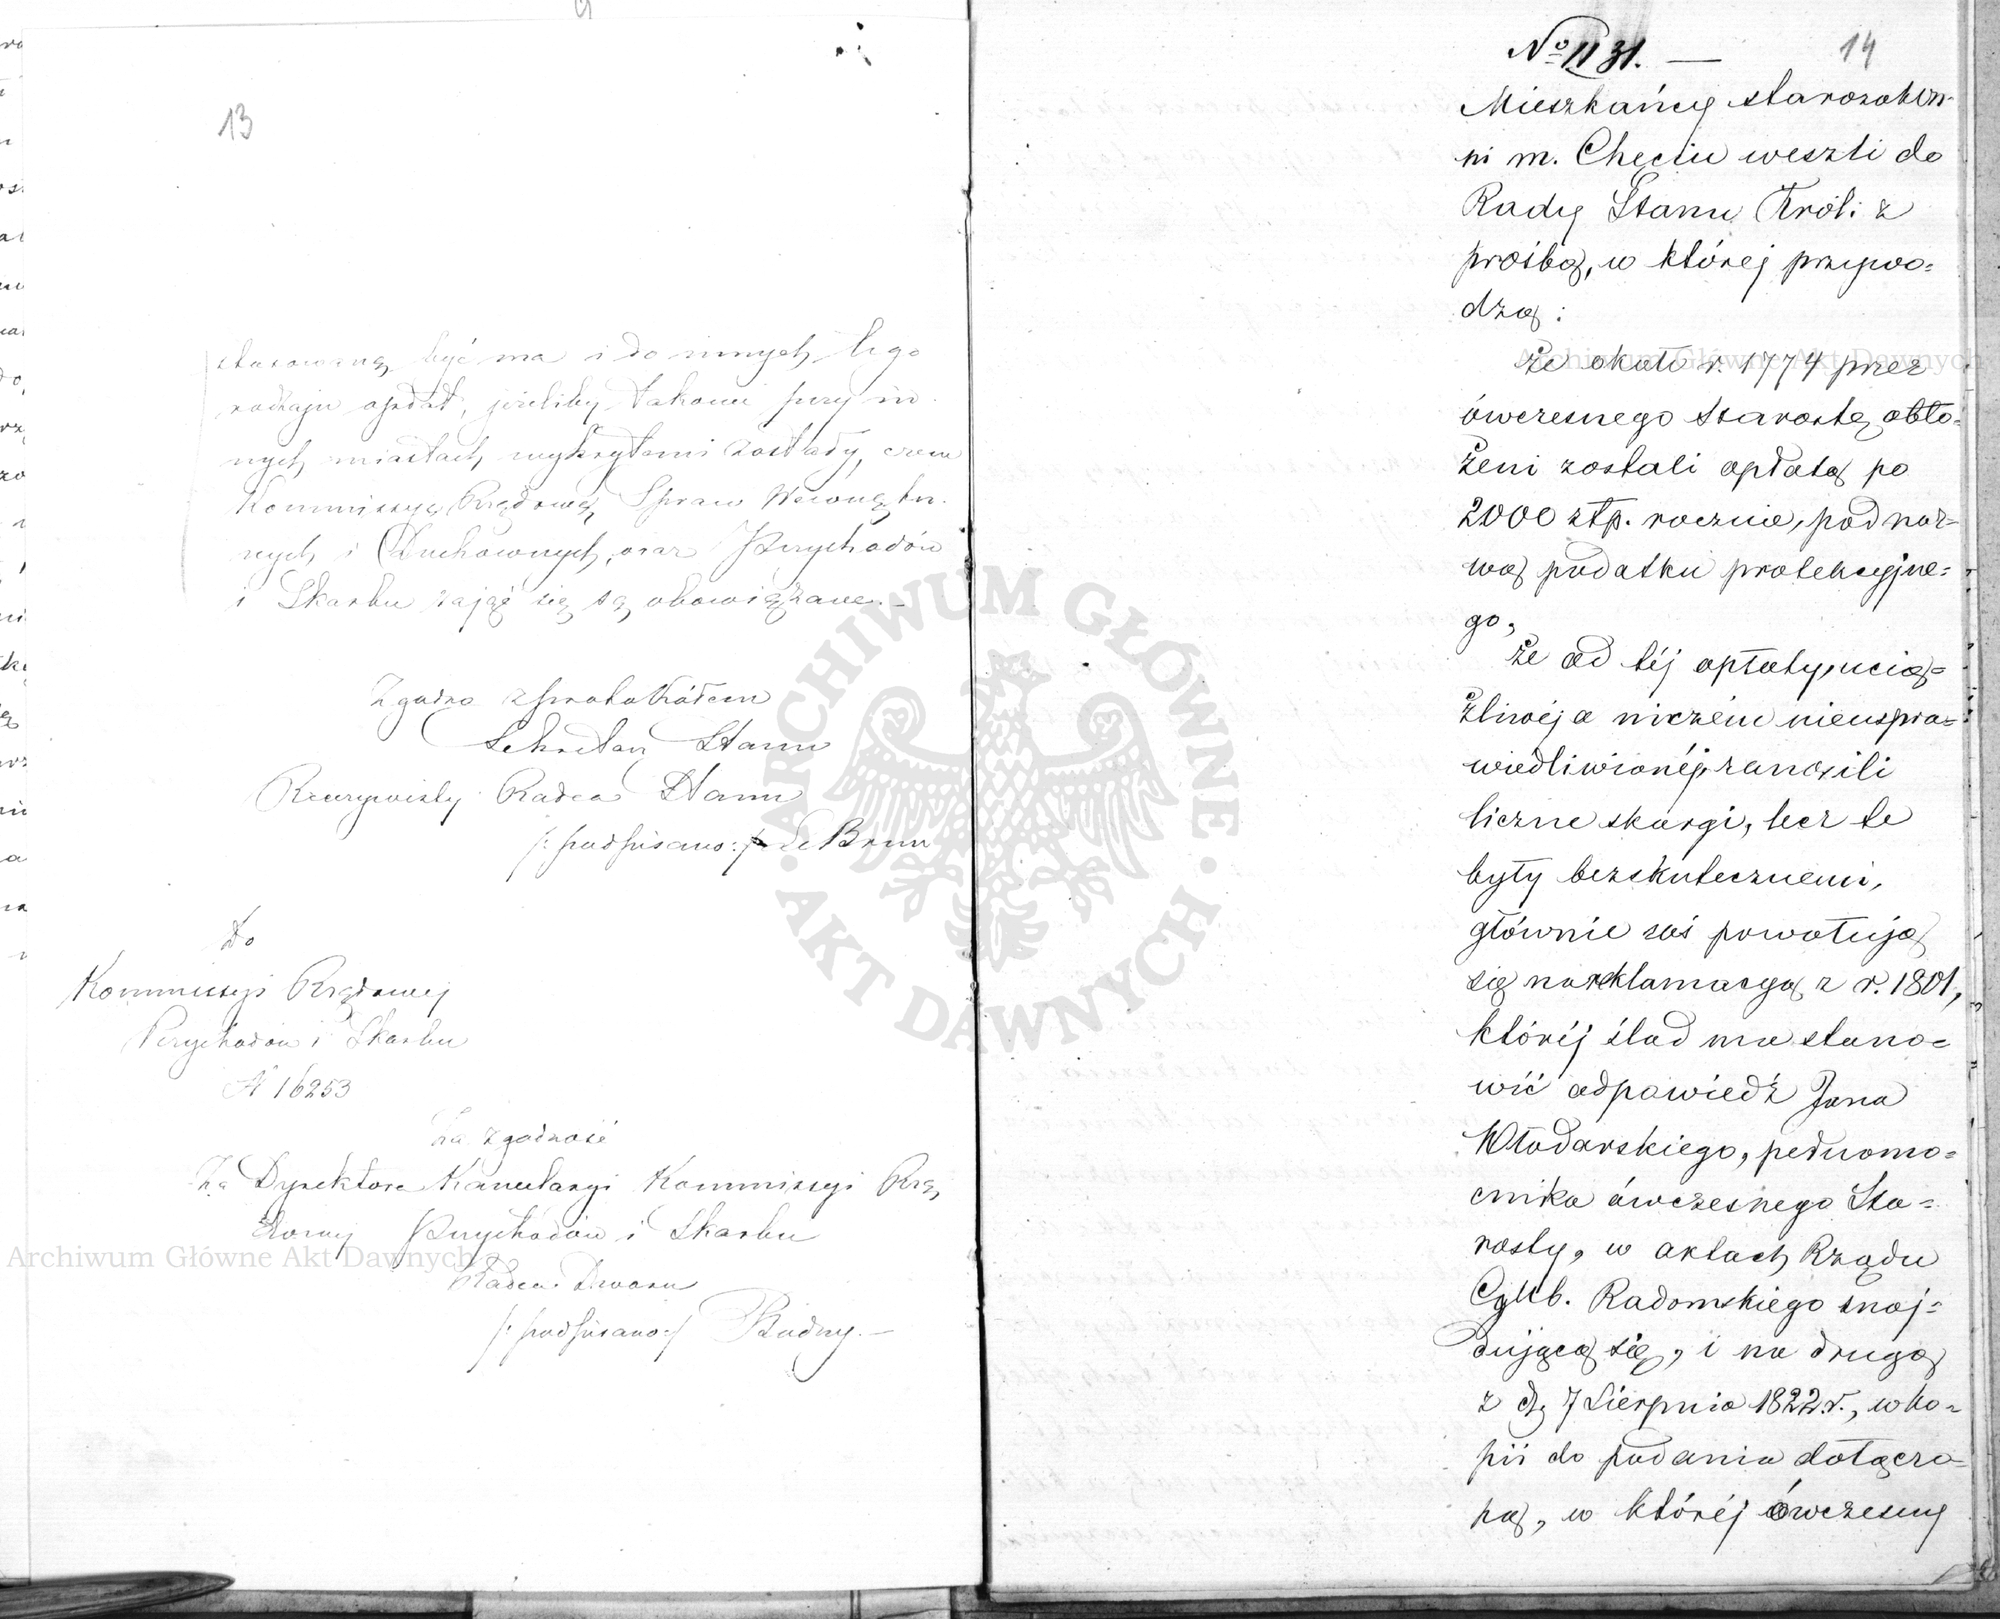 13
stosowaną być ma i do innych tego
rodzaju opłat, jeżeliby takowe przy in-
nych miastach wykrytemi zostały, czem
Kommissye Rządowe Spraw Wewnętrz-
nych i Duchownych, oraz Przychodów
i Skarbu zająć się są obowiązane.—
Zgodno z protokółem
Sekretarz Stanu
Rzeczywisty Radca Stanu
/:podpisano:/ Le Brun
Do
Kommissyi Rządowej
Przychodów i Skarbu
N 16253
Za zgodność
Za Dyrektora Kancelaryi Kommissyi Rzą
dowej Przychodów i Skarbu
Radca Dworu
/:podpisano:/ Budny.—
No 1131. —
14
Mieszkańcy starozakon-
ni m. Chęcin weszli do
Rady Stanu Król: z
prośbą, w której przywo=
dzą:
że około r. 1774 przez
ówczesnego Starostę obło=
żeni zostali opłatą po
2000 złp. rocznie, pod naz=
wą podatku protekcyjne=
go,
że od téj opłaty, ucią=
żliwéj a niczém nieuspra=
wiedliwionéj, zanosili
liczne skargi, lecz te
były bezskutecznemi,
głównie zaś powołują
się na reklamacyą z r. 1801,
któréj ślad ma stano=
wić odpowiedź Jana
Włodarskiego, pełnomo=
cnika ówczesnego Sta=
rosty, w aktach Rządu
Gub. Radomskiego znaj=
dującą się, i na drugą
z d. 7 Sierpnia 1822 r., w ko=
pii do podania dołączo=
ną, w któréj ówczesny
Archiwum Główne Akt Dawnych
Archiwum Główne Akt Dawnych
ARCHIWUM GŁÓWNE · AKT DAWNYCH ·